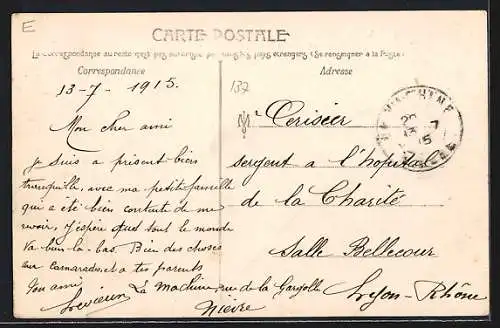 E
CARTE POSTALE
La correspondance au recto n'est pas autorisée par tous les pays étrangers (Se renseigner à la Poste)
Correspondance
Adresse
13-7-1915.
137
Mon cher ami
Je suis a présent bien
tranquille, avec ma petite famille
qui a été bien contente de me
revoir, j'espère quel tout le monde
va bien la-bas Bien des choses
aux camarades et a tes parents
Ton ami
La Machine, rue de la Gargolle
Nièvre
Mr Cerisier
sergent a l'hopital
de la Charité
Salle Bellecour
Lyon-Rhône
LA MACHINE
15